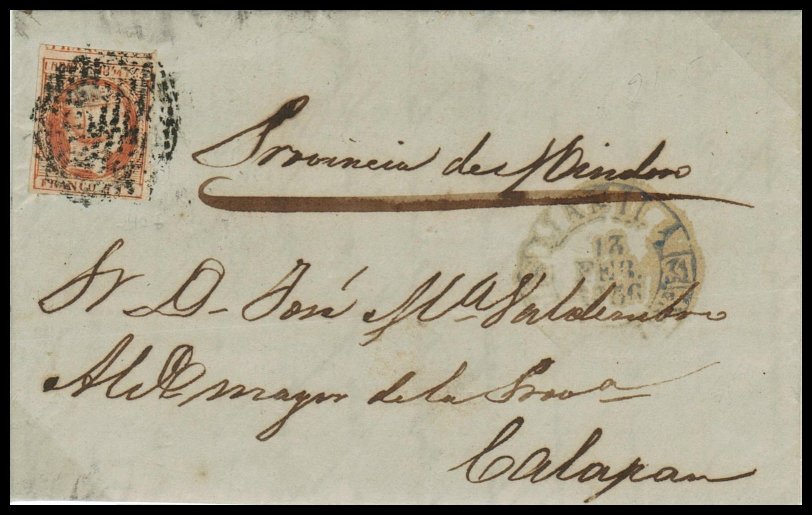 FRANCO
Provincia de Mindoro
MANILA
13
FEB.
1856
Sr. D. José Ma.
Alde mayor de la Prova
Calapan